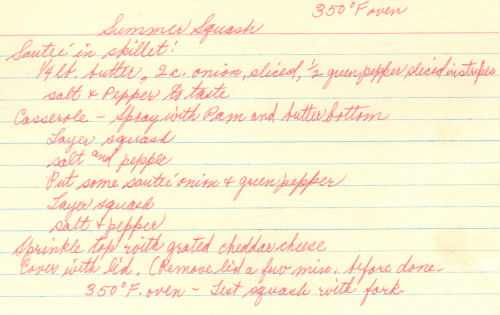 350°F oven
Summer Squash
Sauteé in skillet:
1/4 lb. butter, 2 c. onion, sliced, 1/2 green pepper sliced in stripes
salt & Pepper to taste
Casserole - Spray with Pam and butter bottom
Layer squash
salt and pepper
Put some sauteé onion & green pepper
Layer squash
salt & pepper
Sprinkle top with grated cheddar cheese
Cover with lid. (Remove lid a few min. before done.
350°F. oven - Test squash with fork